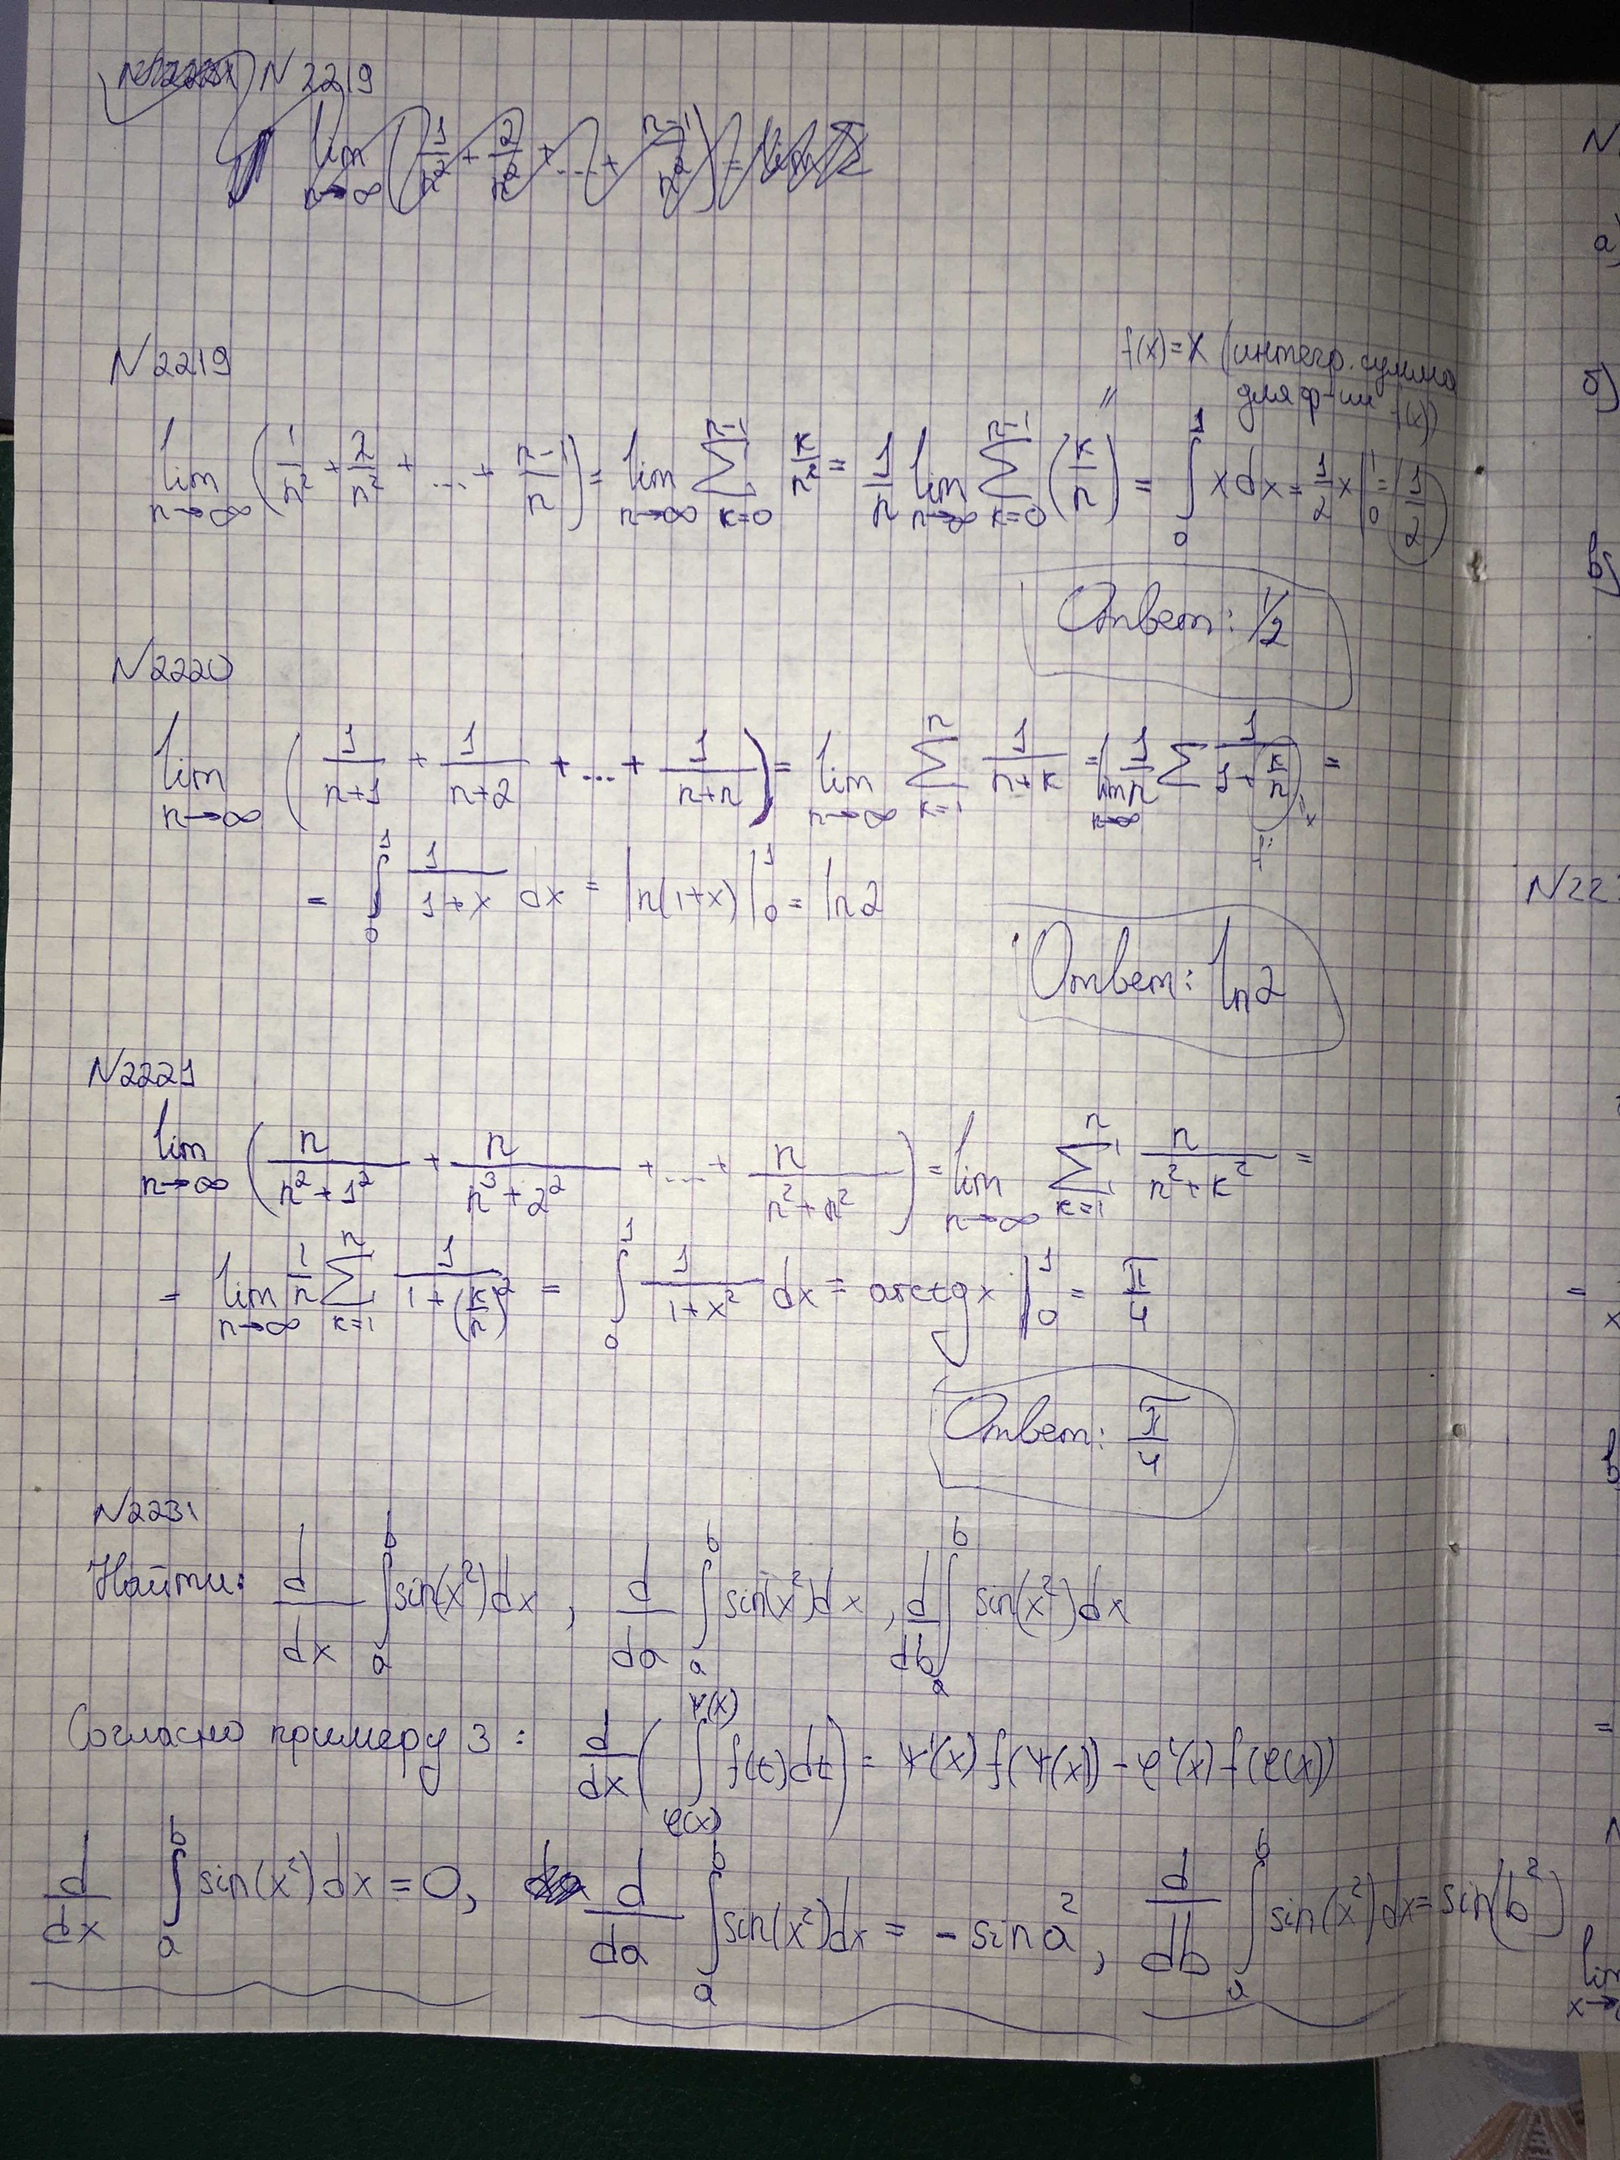 N 2219
lim n→∞ (1/n² + 2/n² + ... + n-1/n²) = lim Σ
N 2219
f(x) = x (интегр. сумма
для ф-ии f(x))
lim n→∞ (1/n² + 2/n² + ... + n-1/n) = lim n→∞ Σ k=0 n-1 k/n² = 1/n lim n→∞ Σ k=0 n-1 (k/n) = ∫₀¹ x dx = 1/2 x |₀¹ = 1/2
Ответ: 1/2
N 2220
lim n→∞ (1/n+1 + 1/n+2 + ... + 1/n+n) = lim n→∞ Σ k=1 n 1/n+k = lim n→∞ 1/n Σ 1/1+(k/n) =
= ∫₀¹ 1/1+x dx = ln(1+x) |₀¹ = ln2
Ответ: ln2
N 2221
lim n→∞ (n/n²+1² + n/n³+2² + ... + n/n²+n²) = lim n→∞ Σ k=1 n n/n²+k² =
= lim n→∞ 1/n Σ k=1 n 1/1+(k/n)² = ∫₀¹ 1/1+x² dx = arctg x |₀¹ = π/4
Ответ: π/4
N 2231
Найти: d/dx ∫ₐᵇ sin(x²)dx , d/da ∫ₐᵇ sin(x²)dx , d/db ∫ₐᵇ sin(x²)dx
Согласно примеру 3 : d/dx (∫ φ(x) ψ(x) f(t)dt) = ψ'(x) f(ψ(x)) - φ'(x) f(φ(x))
d/dx ∫ₐᵇ sin(x²)dx = 0, d/da ∫ₐᵇ sin(x²)dx = - sin a², d/db ∫ₐᵇ sin(x²)dx = sin(b²)
N
а)
б)
в)
N22
=
x
в
=
lim
x→